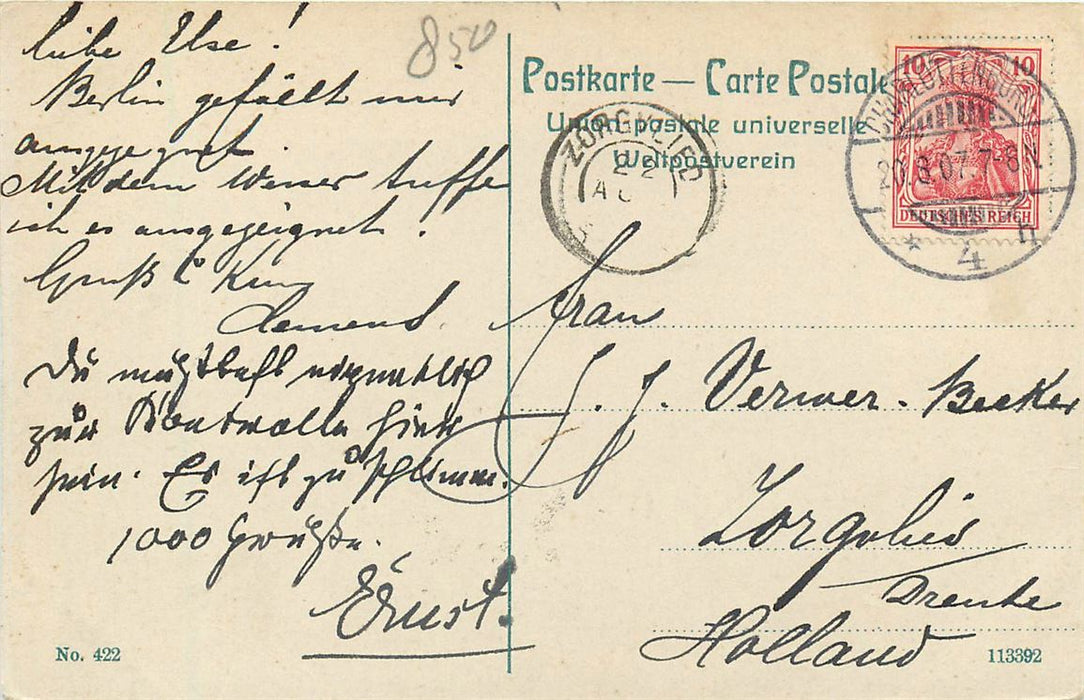 liebe Else!
Berlin gefällt mir
ausgezeichnet.
Mit dem Wetter treffe
ich es ausgezeichnet.
Gruß & Kuss
Clemens.
Du müßtest eigentlich
zur Kontrolle hier
sein. Es ist zu schlimm.
1000 Grüße.
Ernst.
No. 422
850
Postkarte — Carte Postale
Union postale universelle
Weltpostverein
ZORGVLIED
22
AU
10 10
DEUTSCHES REICH
CHARLOTTENBURG
20.8.07.7-8N.
* 4 h
Frau
J. J. Verwer-Becker
Zorgvlied
Drente
Holland
113392